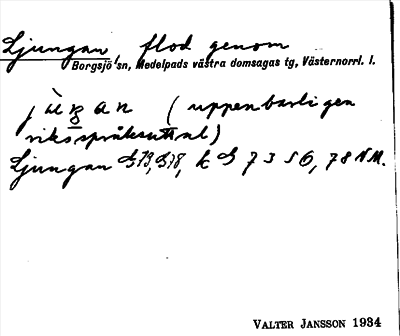 Ljungan, flod genom
Borgsjö sn, Medelpads västra domsagas tg, Västernorrl. l.
(uppenbarligen
riksspråksuttal)
Ljungan
VALTER JANSSON 1934